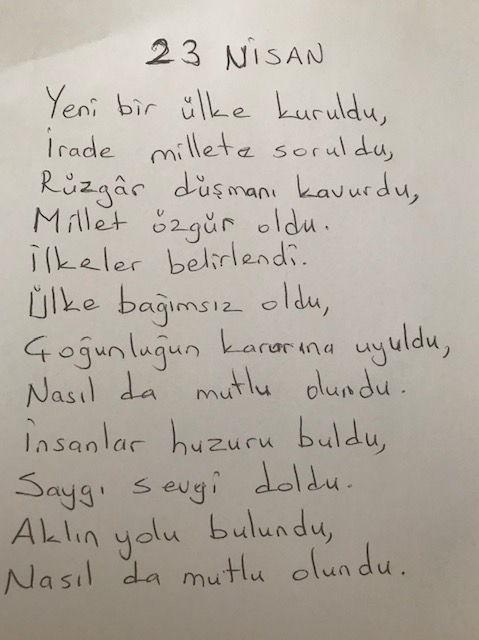 23 NİSAN
Yeni bir ülke kuruldu,
İrade millete soruldu,
Rüzgâr düşmanı kavurdu,
Millet özgür oldu.
İlkeler belirlendi.
Ülke bağımsız oldu,
Çoğunluğun kararına uyuldu,
Nasıl da mutlu olundu.
İnsanlar huzuru buldu,
Saygı sevgi doldu.
Aklın yolu bulundu,
Nasıl da mutlu olundu.